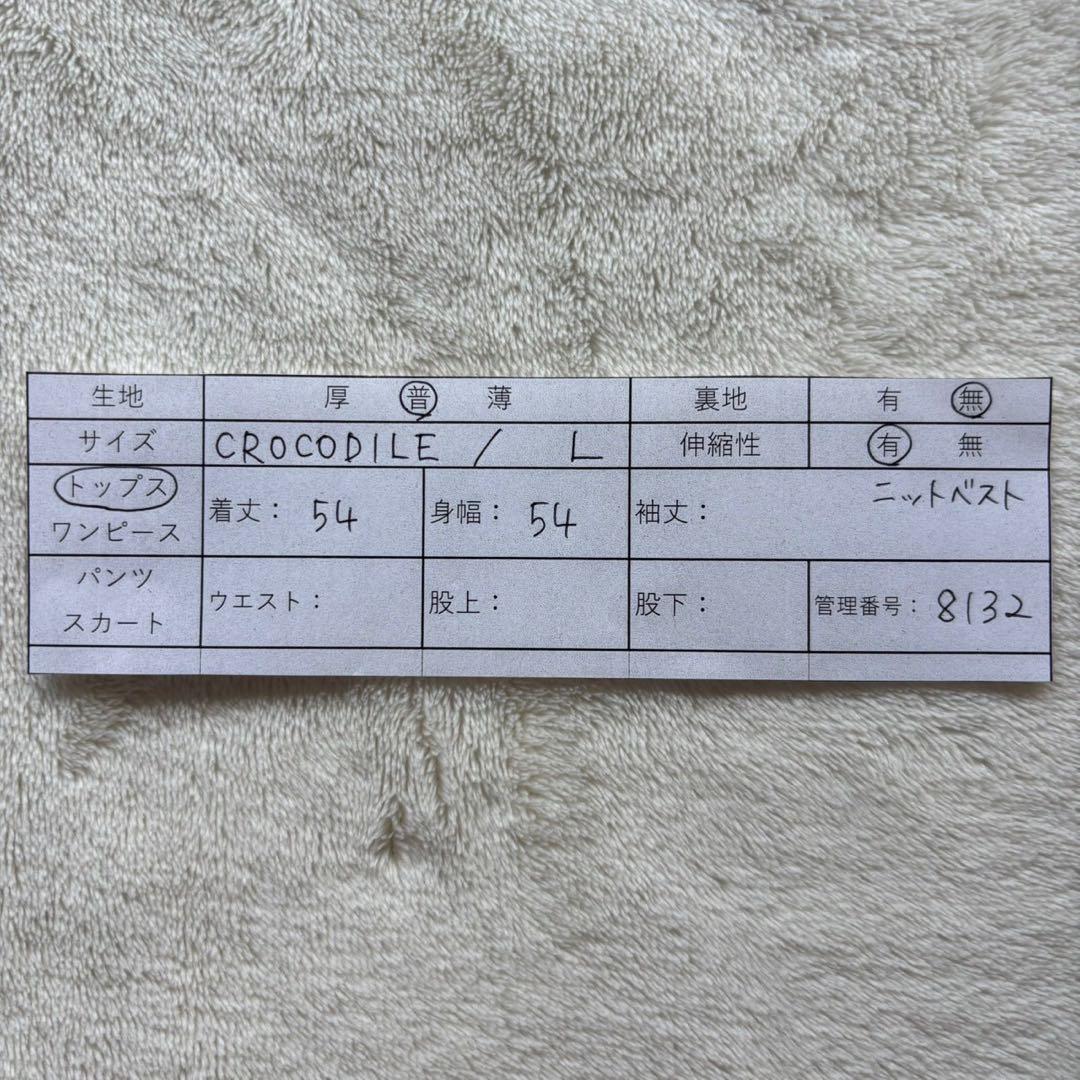 生地 厚 普 薄 裏地 有 無
サイズ CROCODILE / L 伸縮性 有 無
トップス
ワンピース 着丈： 54 身幅： 54 袖丈： ニットベスト
パンツ
スカート ウエスト： 股上： 股下： 管理番号： 8132